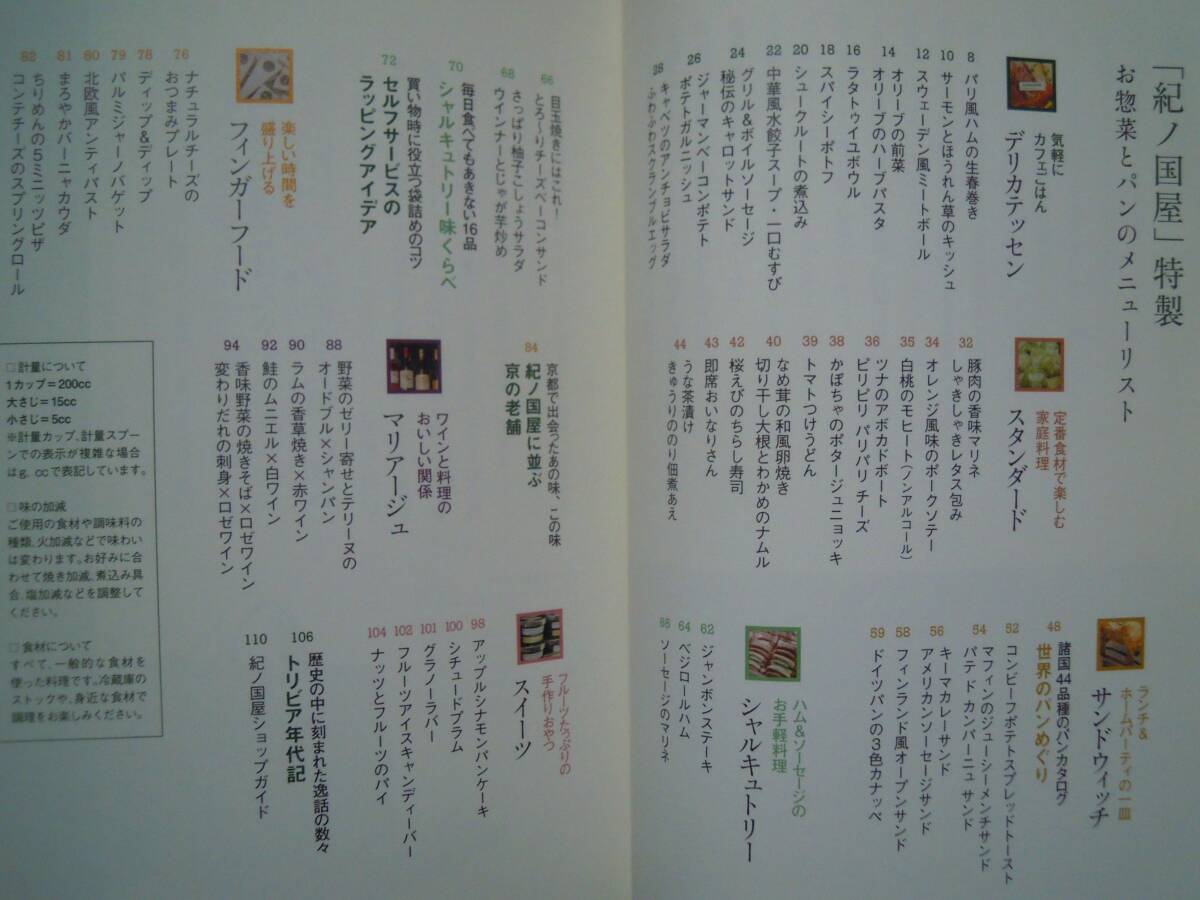 「紀ノ国屋」特製
お惣菜とパンのメニューリスト
気軽に
カフェごはん
デリカテッセン
8 パリ風ハムの生春巻き
10 サーモンとほうれん草のキッシュ
12 スウェーデン風ミートボール
オリーブの前菜
14 オリーブのハーブパスタ
16 ラタトゥイユボウル
18 スパイシーポトフ
20 シュークルートの煮込み
22 中華風水餃子スープ・一口むすび
グリル&ボイルソーセージ
24 秘伝のキャロットサンド
ジャーマンベーコンポテト
26 ポテトガルニッシュ
キャベツのアンチョビサラダ
28 ふわふわスクランブルエッグ
定番食材で楽しむ
家庭料理
スタンダード
32 豚肉の香味マリネ
しゃきしゃきレタス包み
34 オレンジ風味のポークソテー
35 白桃のモヒート(ノンアルコール)
ツナのアボカドボート
36 ピリピリ パリパリ チーズ
38 かぼちゃのポタージュニョッキ
39 トマトつけうどん
なめ茸の和風卵焼き
40 切り干し大根とわかめのナムル
42 桜えびのちらし寿司
43 即席おいなりさん
うなぎ茶漬け
44 きゅうりののり佃煮あえ
ランチ&
ホームパーティの一皿
サンドウィッチ
諸国44品種のパンカタログ
48 世界のパンめぐり
52 コンビーフポテトスプレッドトースト
マフィンのジューシーメンチサンド
54 パテ ド カンパーニュ サンド
キーマカレーサンド
56 アメリカンソーセージサンド
58 フィンランド風オープンサンド
59 ドイツパンの3色カナッペ
ハム&ソーセージの
お手軽料理
シャルキュトリー
62 ジャンボンステーキ
64 ベジロールハム
65 ソーセージのマリネ
目玉焼きにはこれ!
66 とろ〜りチーズベーコンサンド
さっぱり柚子こしょうサラダ
68 ウインナーとじゃが芋炒め
毎日食べてもあきない16品
70 シャルキュトリー味くらべ
買い物時に役立つ袋詰めのコツ
72 セルフサービスの
ラッピングアイデア
楽しい時間を
盛り上げる
フィンガーフード
ナチュラルチーズの
76 おつまみプレート
78 ディップ&ディップ
79 パルミジャーノバゲット
80 北欧風アンティパスト
81 まろやかバーニャカウダ
ちりめんの5ミニッツピザ
82 コンテチーズのスプリングロール
京都で出会ったあの味、この味
84 紀ノ国屋に並ぶ
京の老舗
ワインと料理の
おいしい関係
マリアージュ
野菜のゼリー寄せとテリーヌの
88 オードブル×シャンパン
90 ラムの香草焼き×赤ワイン
92 鮭のムニエル×白ワイン
香味野菜の焼きそば×ロゼワイン
94 変わりだれの刺身×ロゼワイン
フルーツたっぷりの
手作りおやつ
スイーツ
98 アップルシナモンパンケーキ
100 シチュードプラム
101 グラノーラバー
102 フルーツアイスキャンディーバー
104 ナッツとフルーツのパイ
歴史の中に刻まれた逸話の数々
106 トリビア年代記
110 紀ノ国屋ショップガイド
□計量について
1カップ=200cc
大さじ=15cc
小さじ=5cc
※計量カップ、計量スプー
ンでの表示が複雑な場合
はg、ccで表記しています。
□味の加減
ご使用の食材や調味料の
種類、火加減などで味わい
は変わります。お好みに合
わせて焼き加減、煮込み具
合、塩加減などを調整して
ください。
□食材について
すべて、一般的な食材を
使った料理です。冷蔵庫の
ストックや、身近な食材で
調理をお楽しみください。